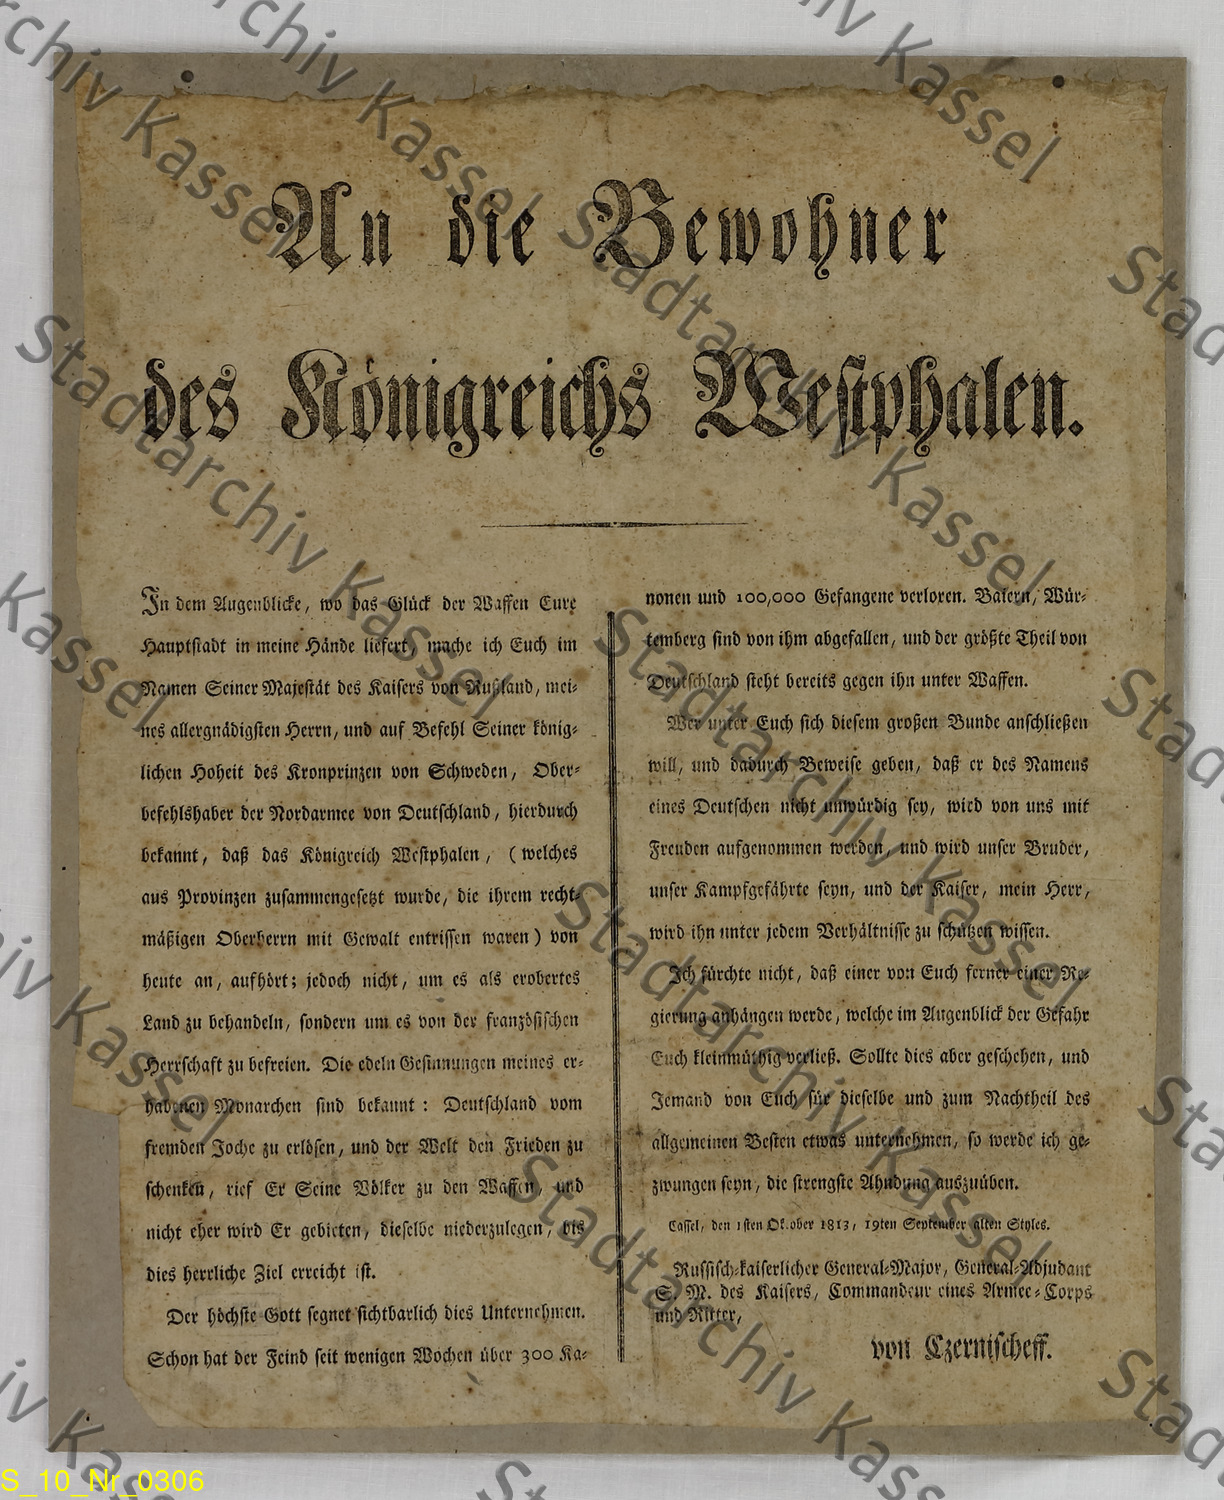 An die Bewohner
des Königreichs Westphalen.
In dem Augenblicke, wo das Glück der Waffen Eure
Hauptstadt in meine Hände liefert, mache ich Euch im
Namen Seiner Majestät des Kaisers von Rußland, mei-
nes allergnädigsten Herrn, und auf Befehl Seiner könig-
lichen Hoheit des Kronprinzen von Schweden, Ober-
befehlshaber der Nordarmee von Deutschland, hierdurch
bekannt, daß das Königreich Westphalen, (welches
aus Provinzen zusammengesetzt wurde, die ihrem recht-
mäßigen Oberherrn mit Gewalt entrissen waren) von
heute an, aufhört; jedoch nicht, um es als erobertes
Land zu behandeln, sondern um es von der französischen
Herrschaft zu befreien. Die edeln Gesinnungen meines er-
habenen Monarchen sind bekannt: Deutschland vom
fremden Joche zu erlösen, und der Welt den Frieden zu
schenken, rief Er Seine Völker zu den Waffen, und
nicht eher wird Er gebieten, dieselbe niederzulegen, bis
dies herrliche Ziel erreicht ist.
Der höchste Gott segnet sichtbarlich dies Unternehmen.
Schon hat der Feind seit wenigen Wochen über 300 Ka-
nonen und 100,000 Gefangene verloren. Baiern, Wür-
temberg sind von ihm abgefallen, und der größte Theil von
Deutschland steht bereits gegen ihn unter Waffen.
Wer unter Euch sich diesem großen Bunde anschließen
will, und dadurch Beweise geben, daß er des Namens
eines Deutschen nicht unwürdig sey, wird von uns mit
Freuden aufgenommen werden, und wird unser Bruder,
unser Kampfgefährte seyn, und der Kaiser, mein Herr,
wird ihn unter jedem Verhältnisse zu schützen wissen.
Ich fürchte nicht, daß einer von Euch ferner einer Re-
gierung anhängen werde, welche im Augenblick der Gefahr
Euch kleinmüthig verließ. Sollte dies aber geschehen, und
Jemand von Euch für dieselbe und zum Nachtheil des
allgemeinen Besten etwas unternehmen, so werde ich ge-
zwungen seyn, die strengste Ahndung auszuüben.
Cassel, den 1sten October 1813, 19ten September alten Styles.
Russisch-kaiserlicher General-Major, General-Adjudant
S. M. des Kaisers, Commandeur eines Armee-Corps
und Ritter,
von Czernischeff.
Stadtarchiv Kassel
S_10_Nr_0306